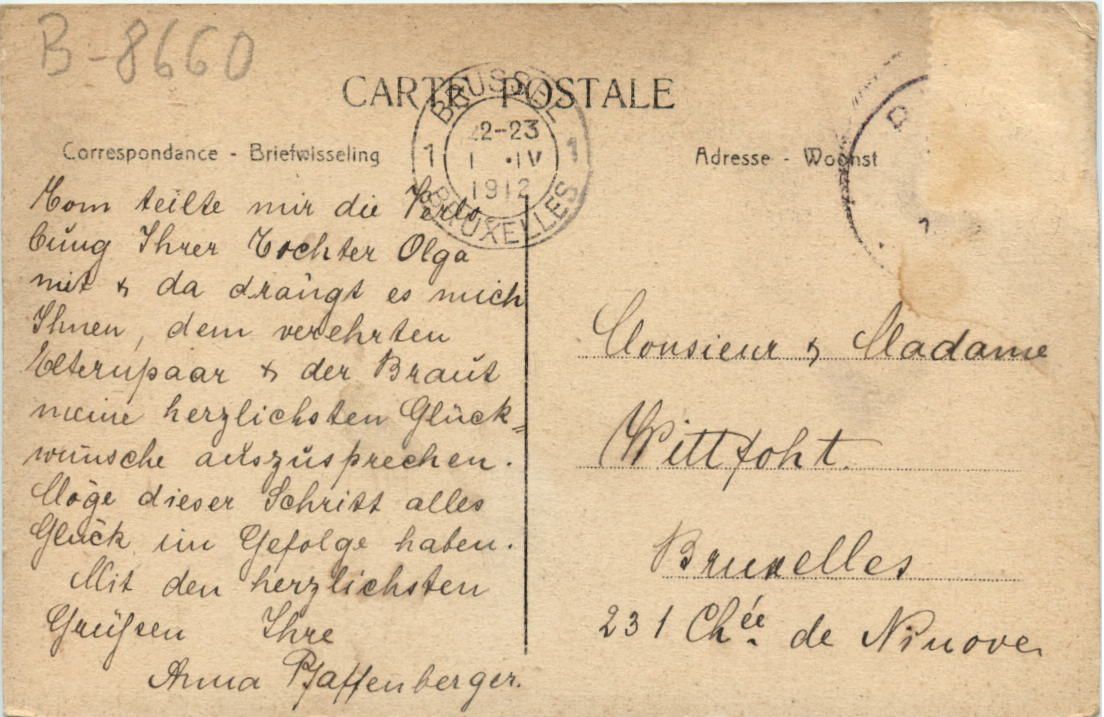 B-8660
CARTE POSTALE
BRUSSEL
22-23
1 1 IV 1
1912
BRUXELLES
Correspondance - Briefwisseling
Adresse - Woonst
Mom teilte mir die Verlo
bung Ihrer Tochter Olga
mit & da drängt es mich
Ihnen, dem verehrten
Elternpaar & der Braut
meine herzlichsten Glück=
wünsche auszusprechen.
Möge dieser Schritt alles
Glück im Gefolge haben.
Mit den herzlichsten
Grüßen Ihre
Anna Pfaffenberger.
Monsieur & Madame
Wittfoht.
Bruxelles
231 Chée de Ninove